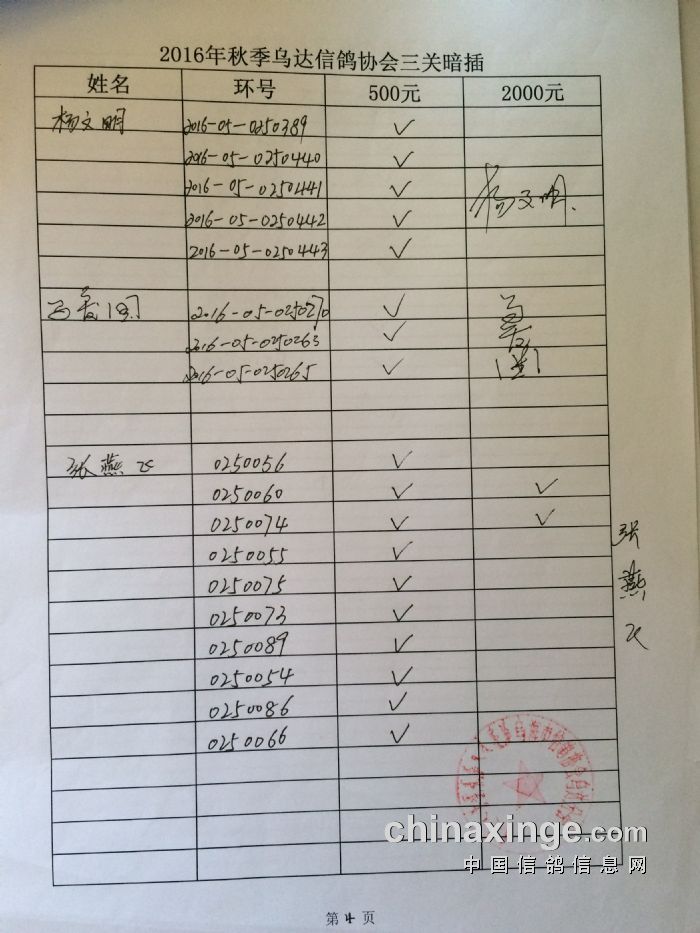 2016年秋季乌达信鸽协会三关暗插
姓名 环号 500元 2000元
杨文明 2016-05-0250389 ✓
2016-05-0250440 ✓
2016-05-0250441 ✓ 杨文明
2016-05-0250442 ✓
2016-05-0250443 ✓
2016-05-0250270 ✓
2016-05-0250263 ✓
2016-05-0250265 ✓
张燕飞 0250056 ✓
0250060 ✓ ✓
0250074 ✓ ✓
0250055 ✓
0250075 ✓
0250073 ✓
0250089 ✓
0250054 ✓
0250086 ✓
0250066 ✓
张燕飞
chinaxinge.com
中国信鸽信息网
第4页